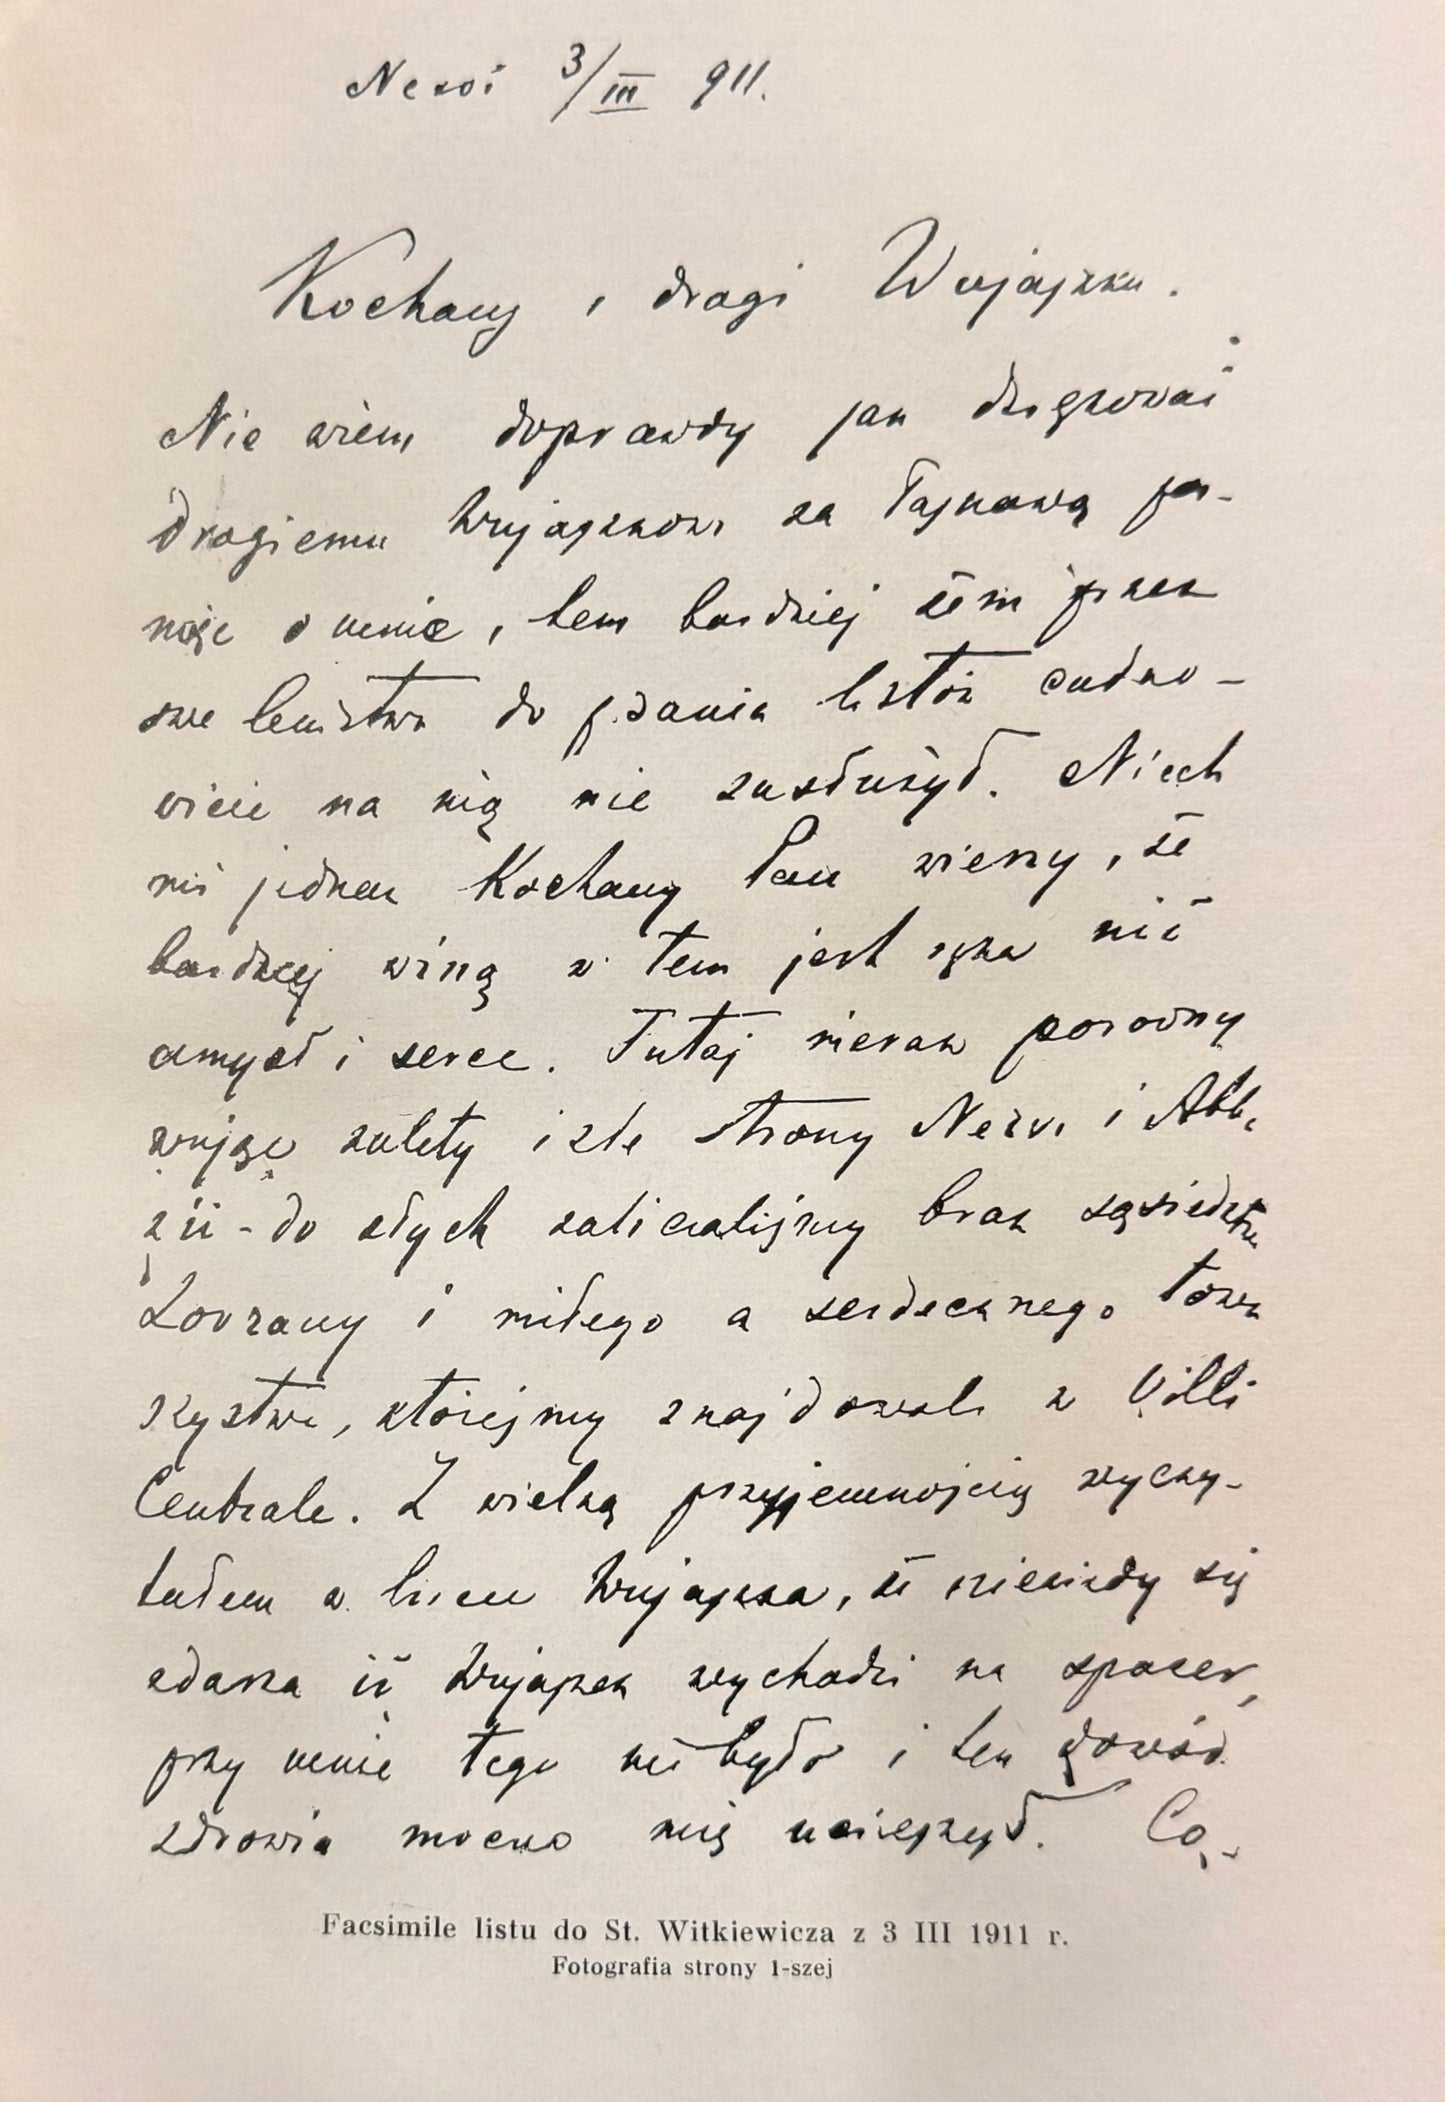 Nervi 3/III 911.
Kochany i drogi Wujaszku.
Nie wiem doprawdy jak dziękować
drogiemu Wujaszkowi za łaskawą pa-
mięć o mnie, tem bardziej żem przez
swe lenistwo do pisania listów cudno-
wicie na nią nie zasłużył. Niech
mi jednak Kochany Pan wierzy, że
bardziej winą w tem jest ręka niż
umysł i serce. Tutaj nieraz porówny
wując zalety i złe strony Nervi i Abb,
zii - do złych zaliczaliśmy brak sąsiedztwa
Lovrany i miłego a serdecznego towa
rzystwa, któreśmy znajdowali w Villi
Centrale. Z wielką przyjemnością wyczy-
tałem w liście Wujaszka, że niekiedy się
zdarza iż Wujaszek wychodzi na spacer,
przy mnie tego nie było i ten dowód
zdrowia mocno mię ucieszył. Co,-
Facsimile listu do St. Witkiewicza z 3 III 1911 r.
Fotografia strony 1-szej